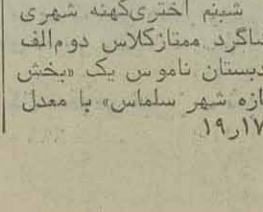 شبنم اختری‌کهنه شهری
شاگرد ممتازکلاس دوم‌الف
دبستان ناموس یک «بخش
تازه شهر سلماس» با معدل
۱۹ر۱۷